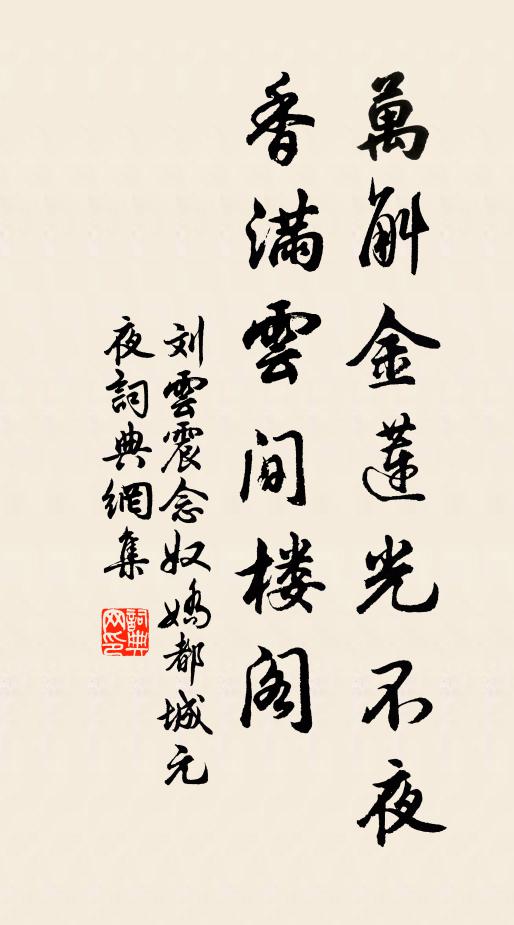 萬斛金蓮光不夜
香满雲间楼阁
刘雲震念奴嬌都城元
夜詞典網集
詞典
网印